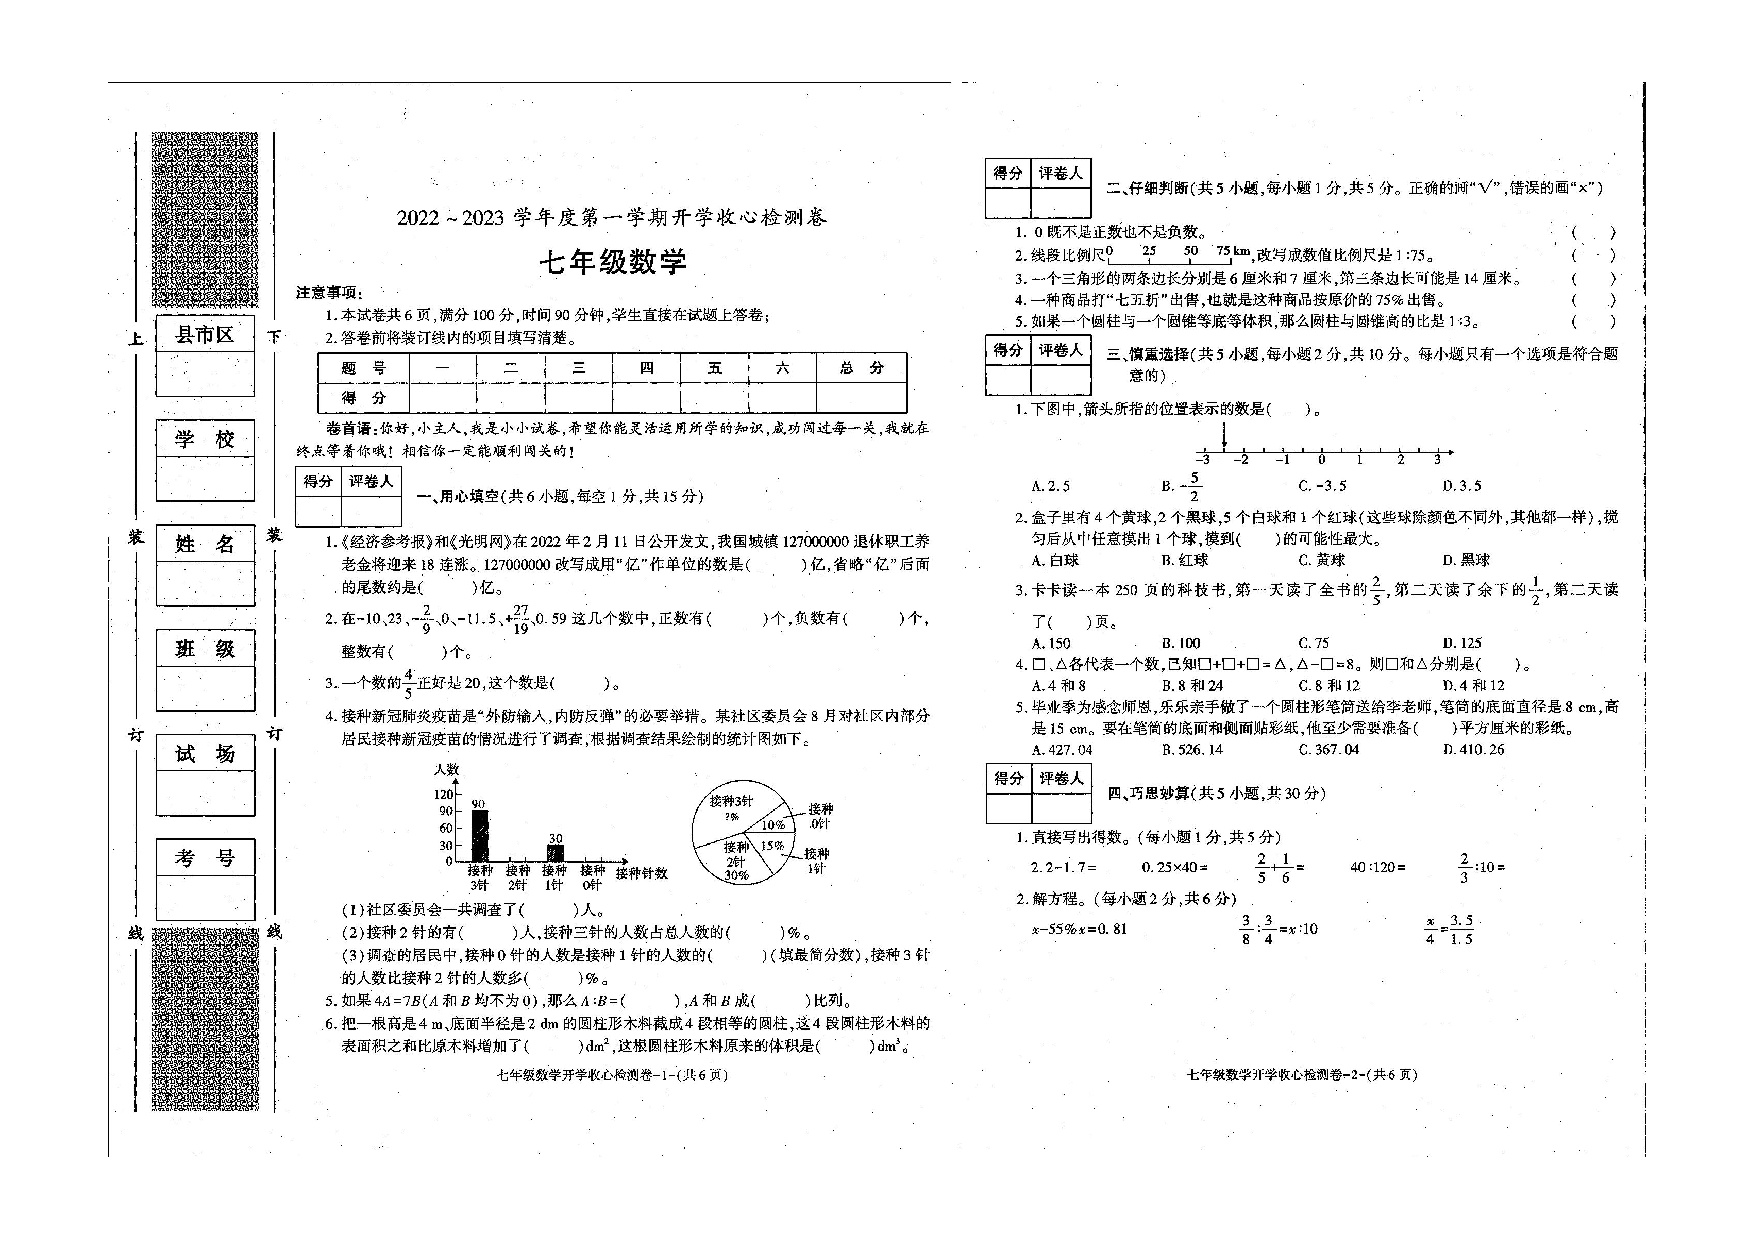 上
装
订
线
县市区
学 校
姓 名
班 级
试 场
考 号
下
装
订
线
2022～2023 学年度第一学期开学收心检测卷
七年级数学
注意事项:
1.本试卷共6页,满分100分,时间90分钟,学生直接在试题上答卷;
2.答卷前将装订线内的项目填写清楚。
题 号 一 二 三 四 五 六 总 分
得 分
卷首语:你好,小主人,我是小小试卷,希望你能灵活运用所学的知识,成功闯过每一关,我就在
终点等着你哦! 相信你一定能顺利闯关的!
得分 评卷人
一、用心填空(共6小题,每空1分,共15分)
1.《经济参考报》和《光明网》在2022年2月11日公开发文,我国城镇127000000退休职工养
老金将迎来18连涨。127000000改写成用“亿”作单位的数是( )亿,省略“亿”后面
的尾数约是( )亿。
2.在-10、23、-2/9、0、-11.5、+27/19、0.59这几个数中,正数有( )个,负数有( )个,
整数有( )个。
3.一个数的4/5正好是20,这个数是( )。
4.接种新冠肺炎疫苗是“外防输入,内防反弹”的必要举措。某社区委员会8月对社区内部分
居民接种新冠疫苗的情况进行了调查,根据调查结果绘制的统计图如下。
人数
120
90
60
30
0
90
30
接种3针 接种2针 接种1针 接种0针 接种针数
接种3针 ?%
10% 接种0针
15% 接种1针
接种2针 30%
(1)社区委员会一共调查了( )人。
(2)接种2针的有( )人,接种三针的人数占总人数的( )%。
(3)调查的居民中,接种0针的人数是接种1针的人数的( )(填最简分数),接种3针
的人数比接种2针的人数多( )%。
5.如果4A=7B(A和B均不为0),那么A∶B=( ),A和B成( )比列。
6.把一根高是4 m、底面半径是2 dm的圆柱形木料截成4段相等的圆柱,这4段圆柱形木料的
表面积之和比原木料增加了( )dm²,这根圆柱形木料原来的体积是( )dm³。
七年级数学开学收心检测卷-1-(共6页)
得分 评卷人
二、仔细判断(共5小题,每小题1分,共5分。正确的画“√”,错误的画“×”)
1. 0既不是正数也不是负数。 ( )
2.线段比例尺0 25 50 75 km,改写成数值比例尺是1∶75。 ( )
3.一个三角形的两条边长分别是6厘米和7厘米,第三条边长可能是14厘米。 ( )
4.一种商品打“七五折”出售,也就是这种商品按原价的75%出售。 ( )
5.如果一个圆柱与一个圆锥等底等体积,那么圆柱与圆锥高的比是1∶3。 ( )
得分 评卷人
三、慎重选择(共5小题,每小题2分,共10分。每小题只有一个选项是符合题
意的)
1.下图中,箭头所指的位置表示的数是( )。
-3 -2 -1 0 1 2 3
A.2.5 B.-5/2 C.-3.5 D.3.5
2.盒子里有4个黄球,2个黑球,5个白球和1个红球(这些球除颜色不同外,其他都一样),搅
匀后从中任意摸出1个球,摸到( )的可能性最大。
A.白球 B.红球 C.黄球 D.黑球
3.卡卡读一本250页的科技书,第一天读了全书的2/5,第二天读了余下的1/2,第二天读
了( )页。
A.150 B.100 C.75 D.125
4.□、△各代表一个数,已知□+□+□=△,△-□=8。则□和△分别是( )。
A.4和8 B.8和24 C.8和12 D.4和12
5.毕业季为感念师恩,乐乐亲手做了一个圆柱形笔筒送给李老师,笔筒的底面直径是8 cm,高
是15 cm。要在笔筒的底面和侧面贴彩纸,他至少需要准备( )平方厘米的彩纸。
A.427.04 B.526.14 C.367.04 D.410.26
得分 评卷人
四、巧思妙算(共5小题,共30分)
1.直接写出得数。(每小题1分,共5分)
2.2-1.7= 0.25×40= 2/5+1/6= 40∶120= 2/3∶10=
2.解方程。(每小题2分,共6分)
x-55%x=0.81 3/8∶3/4=x∶10 x/4=3.5/1.5
七年级数学开学收心检测卷-2-(共6页)